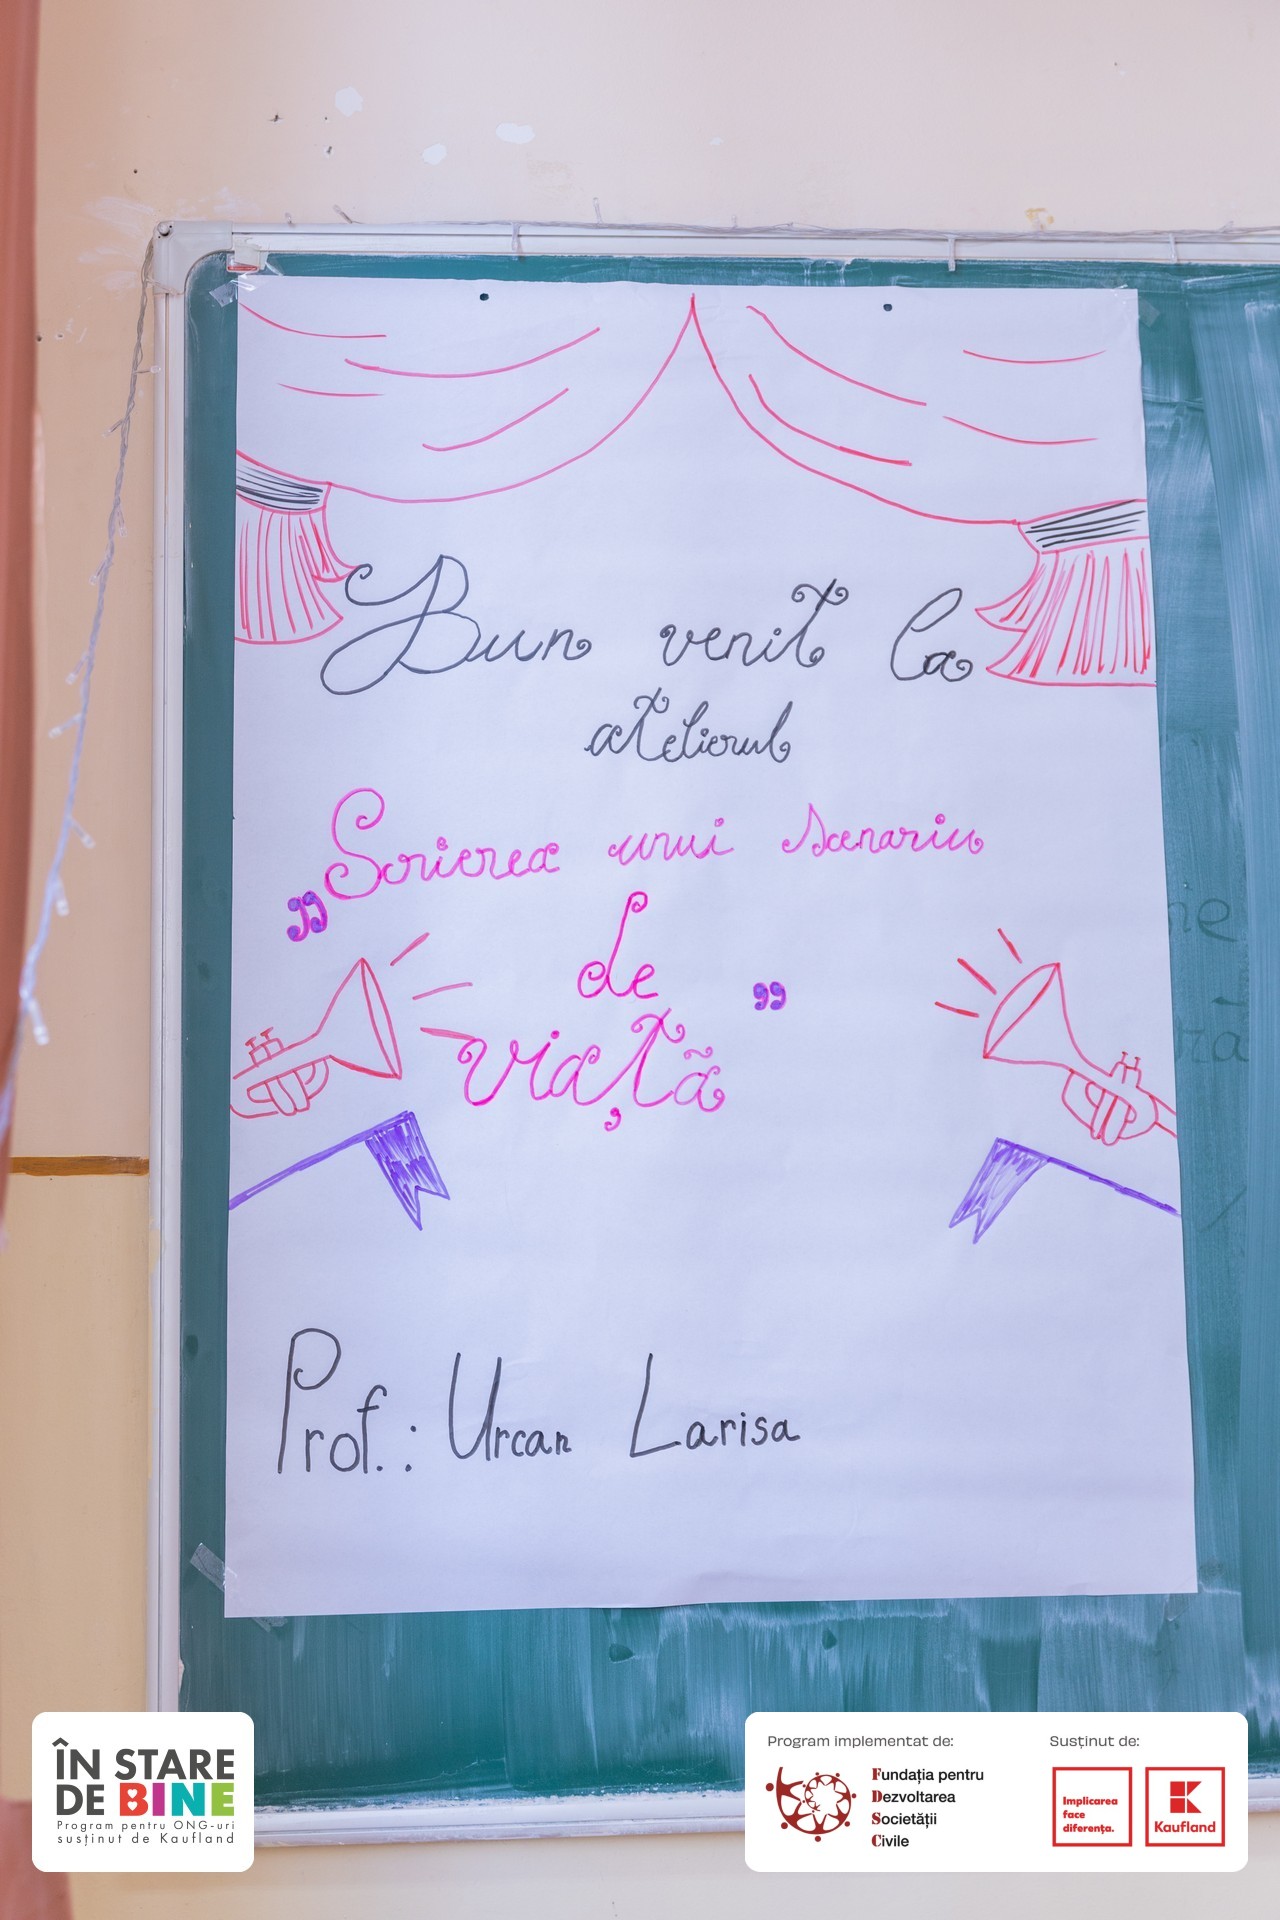 Bun venit la
atelierul
„Scrierea unui scenariu
de
viață”
Prof.: Urcan Larisa
ÎN STARE
DE BINE
Program pentru ONG-uri
susținut de Kaufland
Program implementat de:
Fundația pentru
Dezvoltarea
Societății
Civile
Susținut de:
Implicarea
face
diferența.
Kaufland